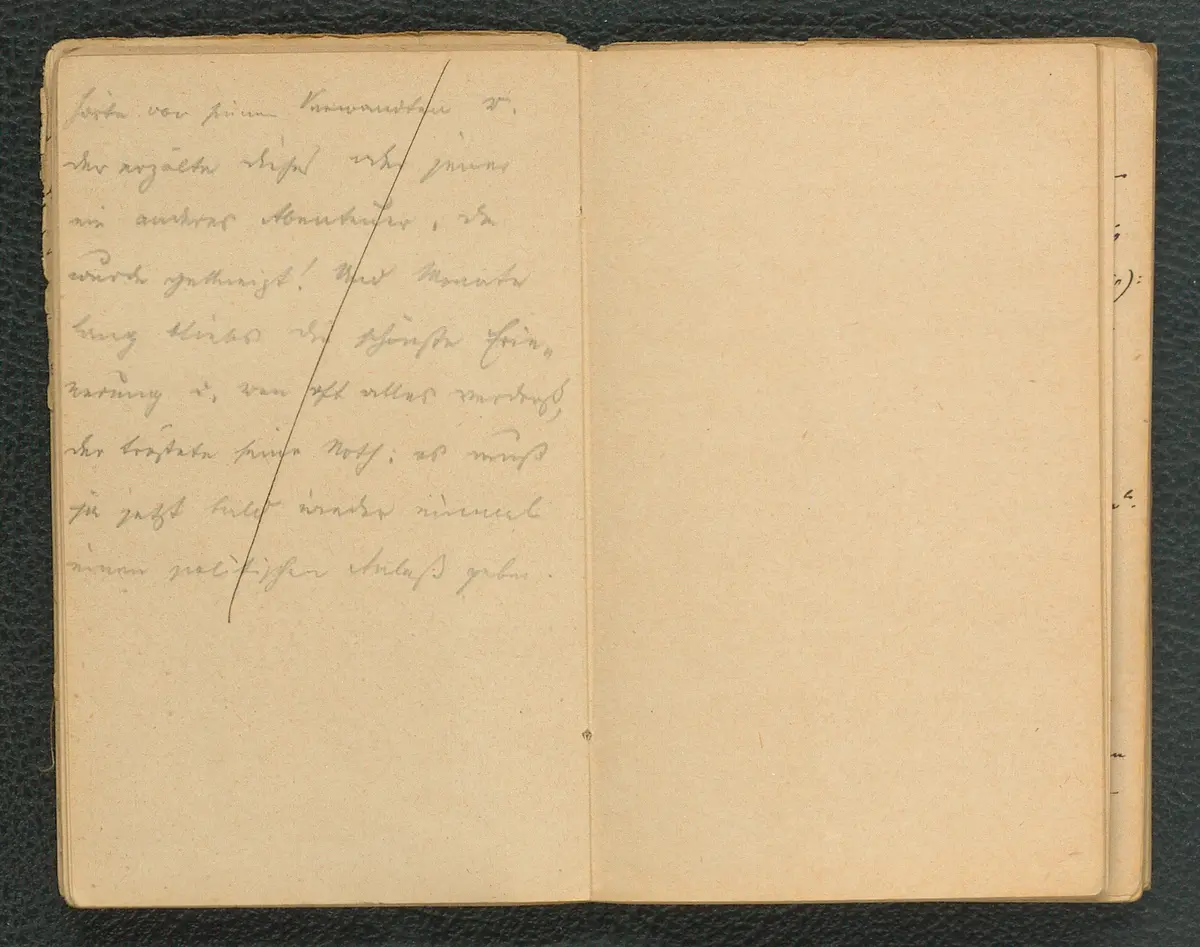 hörte von seinen Verwandten u.
der erzälte dieses oder jener
ein anderes Abenteuer, da
wurde geschneizt! Und Monate
lang bliebs die schönste Erin-
nerung u. wen oft alles verdroß,
der tröstete seine Noth: es muß
ja jetzt bald wieder einmal
einen politischen Anlaß geben.